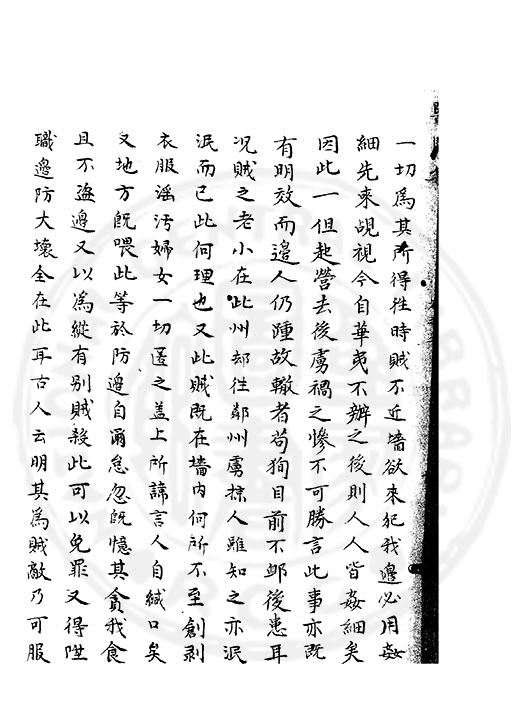 一切為其所得徃時賊不近墻欲來犯我邊必用姦
細先來覘視今自華夷不辨之後則人人皆姦細矣
因此一但赴營去後虜禍之慘不可勝言此事亦既
有明效而邊人仍踵故轍者苟狥目前不䘏後患耳
况賊之老小在此州却徃鄰州虜掠人雖知之亦泯
泯而已此何理也又此賊既在墻内何所不至創剥
衣服滛汚婦女一切匿之盖上所諱言人自緘口矣
又地方既喂此等於防邊自爾怠忽既憶其貪我食
且不盗邊又以為縱有别賊殺此可以免罪又得陞
職邊防大壞全在此耳古人云明其為賊敵乃可服